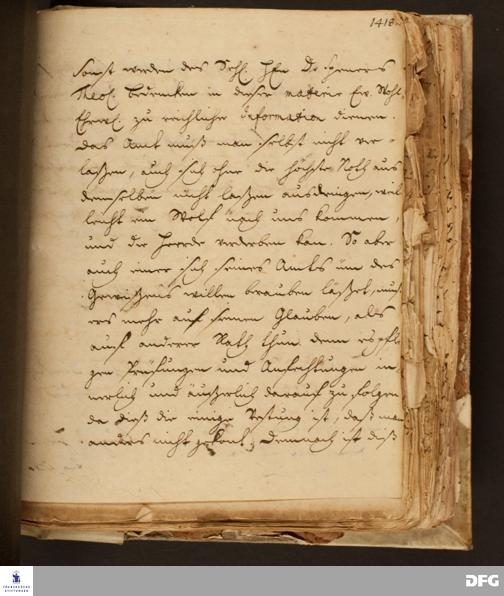 1418.
sonst werden des Sehl. Hrn D. Speners
Theol. Bedencken in dieser materie Ew. Wohl
Ehrwl. zu reichlicher Information dienen.
das Amt muß man selbst nicht ver-
laßen, auch sich ohne die höchste Noth aus
demselben nicht laßen ausdringen, weil
leicht ein Wolf nach uns kommen,
und die Heerde verderben kan. So aber
auch einer sich seines Amts üm des
Gewißens willen berauben läßet, muß
ers mehr auf seinen Glauben, als
auf anderer Rath thun. denn es pfle-
gen Prüfungen und Anfechtungen in-
nerlich und äußerlich darauf zu folgen
da dieß die einige Vestung ist, daß man
anders nicht gekont; Demnach ist diß
FRANCKESCHE
STIFTUNGEN
DFG